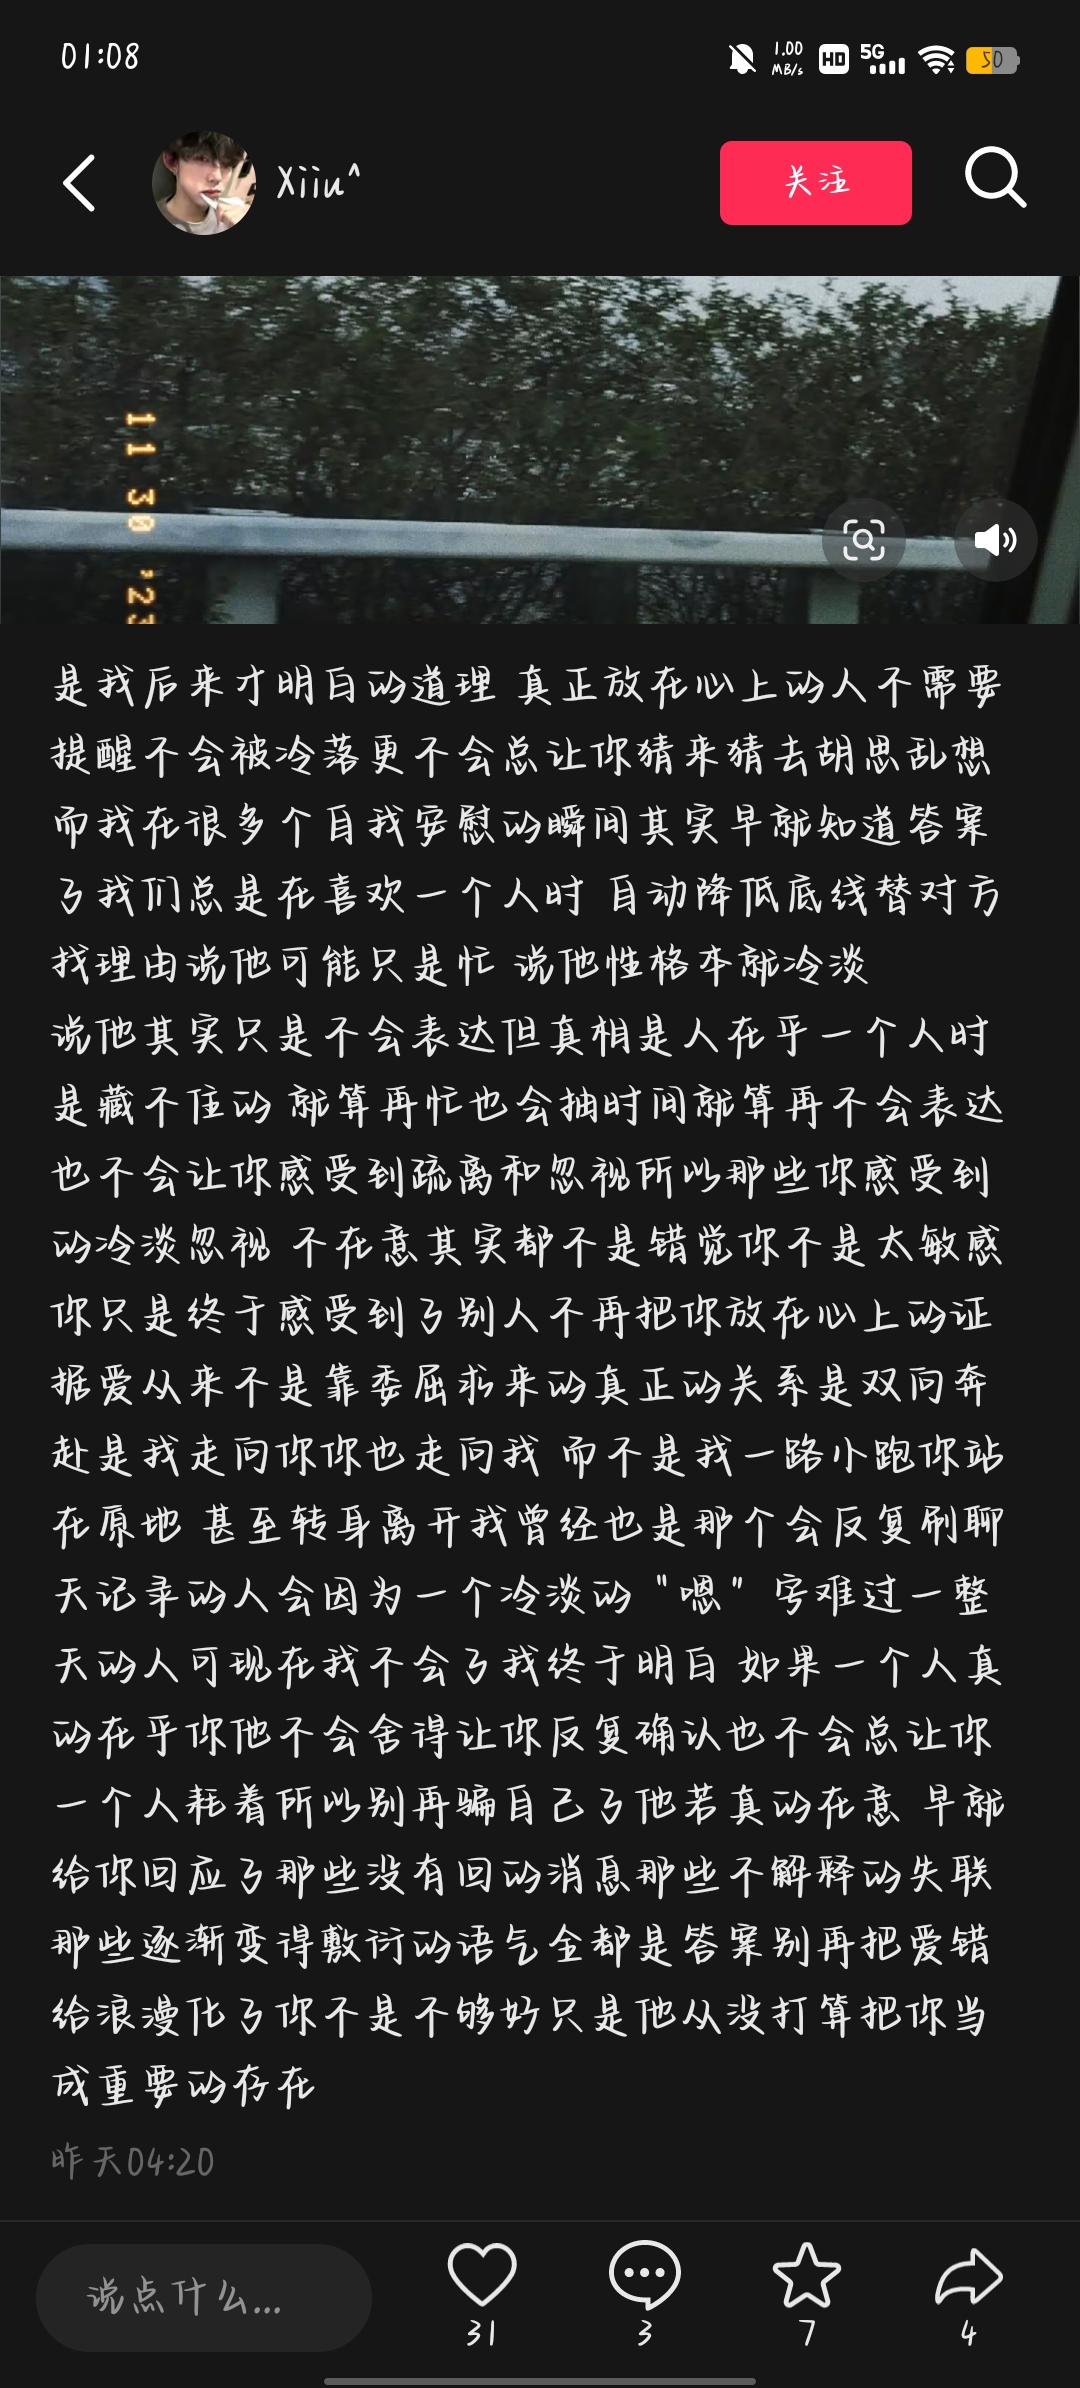 01:08
1.00 MB/s HD 5G 50
Xiiu^
关注
11 30 '23
是我后来才明白的道理 真正放在心上的人不需要
提醒不会被冷落更不会总让你猜来猜去胡思乱想
而我在很多个自我安慰的瞬间其实早就知道答案
了我们总是在喜欢一个人时 自动降低底线替对方
找理由说他可能只是忙 说他性格本就冷淡
说他其实只是不会表达但真相是人在乎一个人时
是藏不住的 就算再忙也会抽时间就算再不会表达
也不会让你感受到疏离和忽视所以那些你感受到
的冷淡忽视 不在意其实都不是错觉你不是太敏感
你只是终于感受到了别人不再把你放在心上的证
据爱从来不是靠委屈求来的真正的关系是双向奔
赴是我走向你你也走向我 而不是我一路小跑你站
在原地 甚至转身离开我曾经也是那个会反复刷聊
天记录的人会因为一个冷淡的"嗯"字难过一整
天的人可现在我不会了我终于明白 如果一个人真
的在乎你他不会舍得让你反复确认也不会总让你
一个人耗着所以别再骗自己了他若真的在意 早就
给你回应了那些没有回的消息那些不解释的失联
那些逐渐变得敷衍的语气全都是答案别再把爱错
给浪漫化了你不是不够好只是他从没打算把你当
成重要的存在
昨天04:20
说点什么...
31
3
7
4